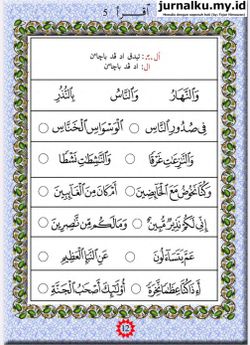 jurnalku.my.id
إقرأ 5
ال: تيدق اد قد باچاءن
وَالنَّهَارُ وَالنَّاسُ بِالنُّذُرِ
فِي صُدُورِ النَّاسِ الْوَسْوَاسِ الْخَنَّاسِ
وَالنَّزِعَتِ غَرْقًا وَالنَّشِطَتِ نَشْطًا
وَكُنَّا نَخُوضُ مَعَ الْخَائِضِينَ أَمْ كَانَ مِنَ الْغَائِبِينَ
إِنِّي لَكُمْ نَذِيرٌ مُّبِينٌ وَمَا لَكُمْ مِّن نَّصِرِينَ
عَمَّ يَتَسَاءَلُونَ عَنِ النَّبَإِ الْعَظِيمِ
أَءِذَا كُنَّا عِظَمًا نَّخِرَةً أُولَئِكَ أَصْحَبُ الْجَنَّةِ
12